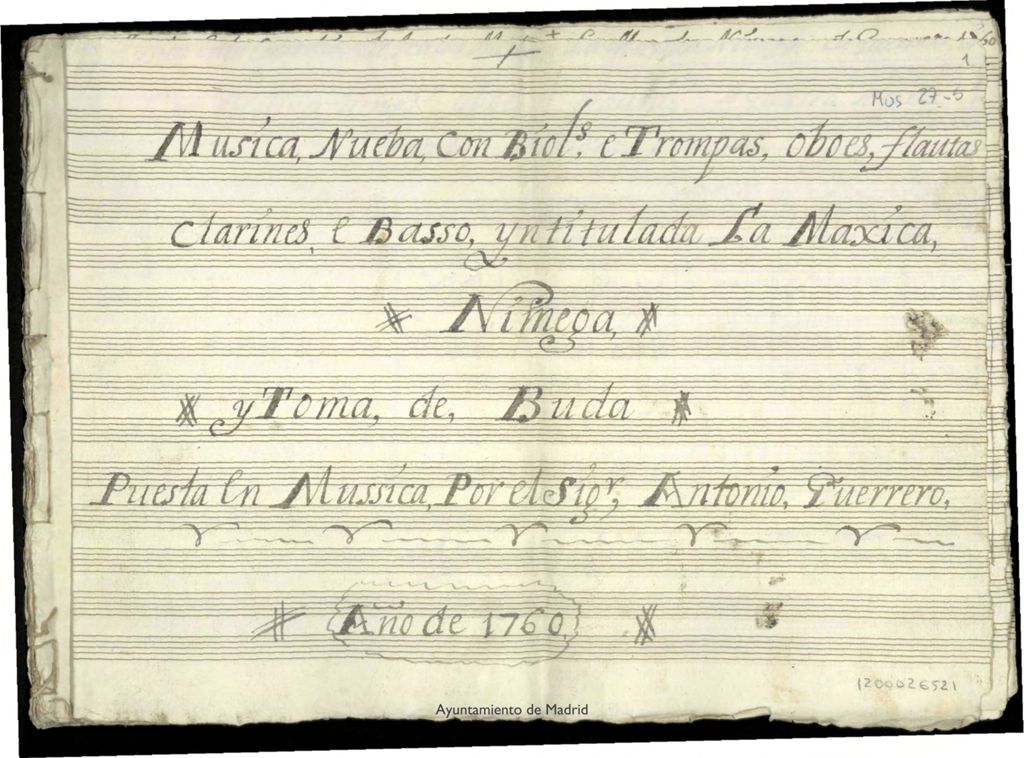 1
Mus 27-6
Musica, Nueba, Con Biol.s, e Trompas, oboes, flautas
Clarines, e Basso, yntitulada La Maxica,
Nimega,
y Toma, de, Buda
Puesta en Mussica, Por el Sigr, Antonio, Guerrero,
Año de 1760
1200026521
Ayuntamiento de Madrid